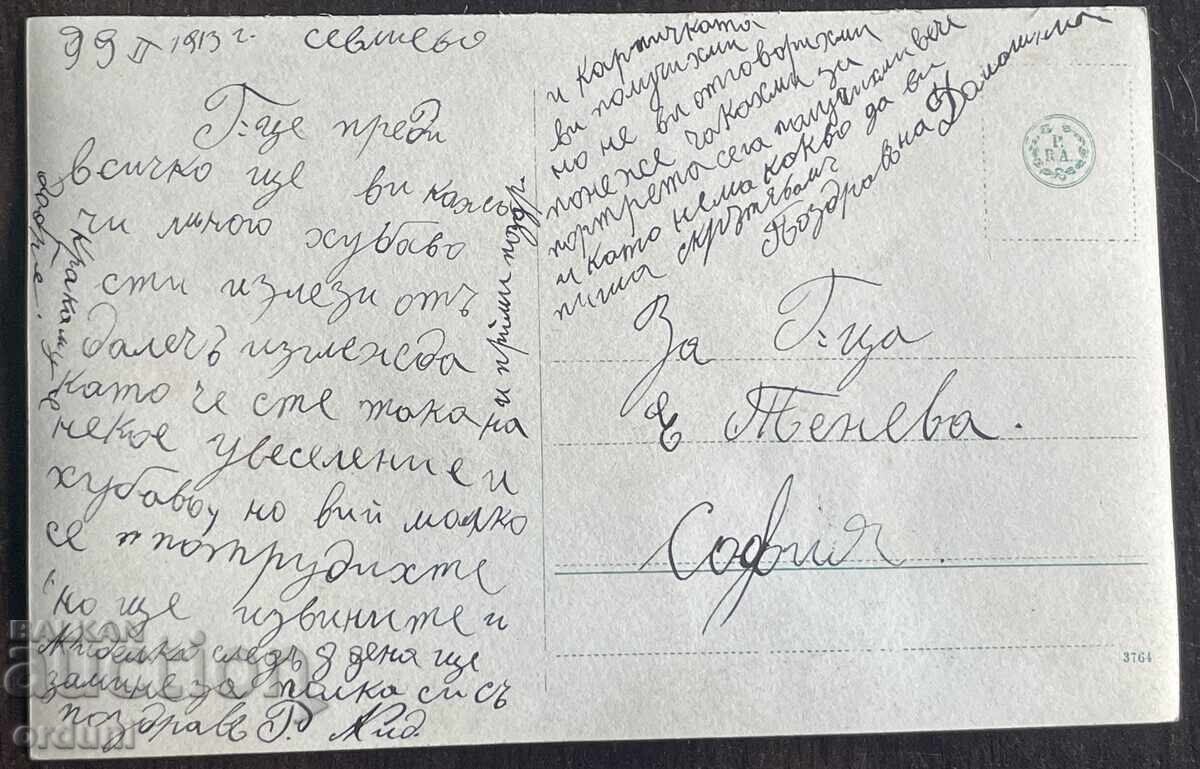 II 1913 г. Севлиево
Г-це преди
всичко ще ви кажа
чи много хубаво
сти излези отъ
далечъ изглежда
като че сте така на
некое увеселение и
хубаво, но вий малко
се потрудихте
но ще извините и
следъ дена ще
замине за полка си съ
поздравъ Г.
и прими
и картичката
ви получихми
но не ви отговорихми
понеже чакахми за
портрета сега получихми вече
и като нема какво да ви
пиша скръстявамъ
Поздравъ на Домашни
За Г-ца
Е Тенева.
София.
P.
R A.
3764
BALKAN
auction
orduni